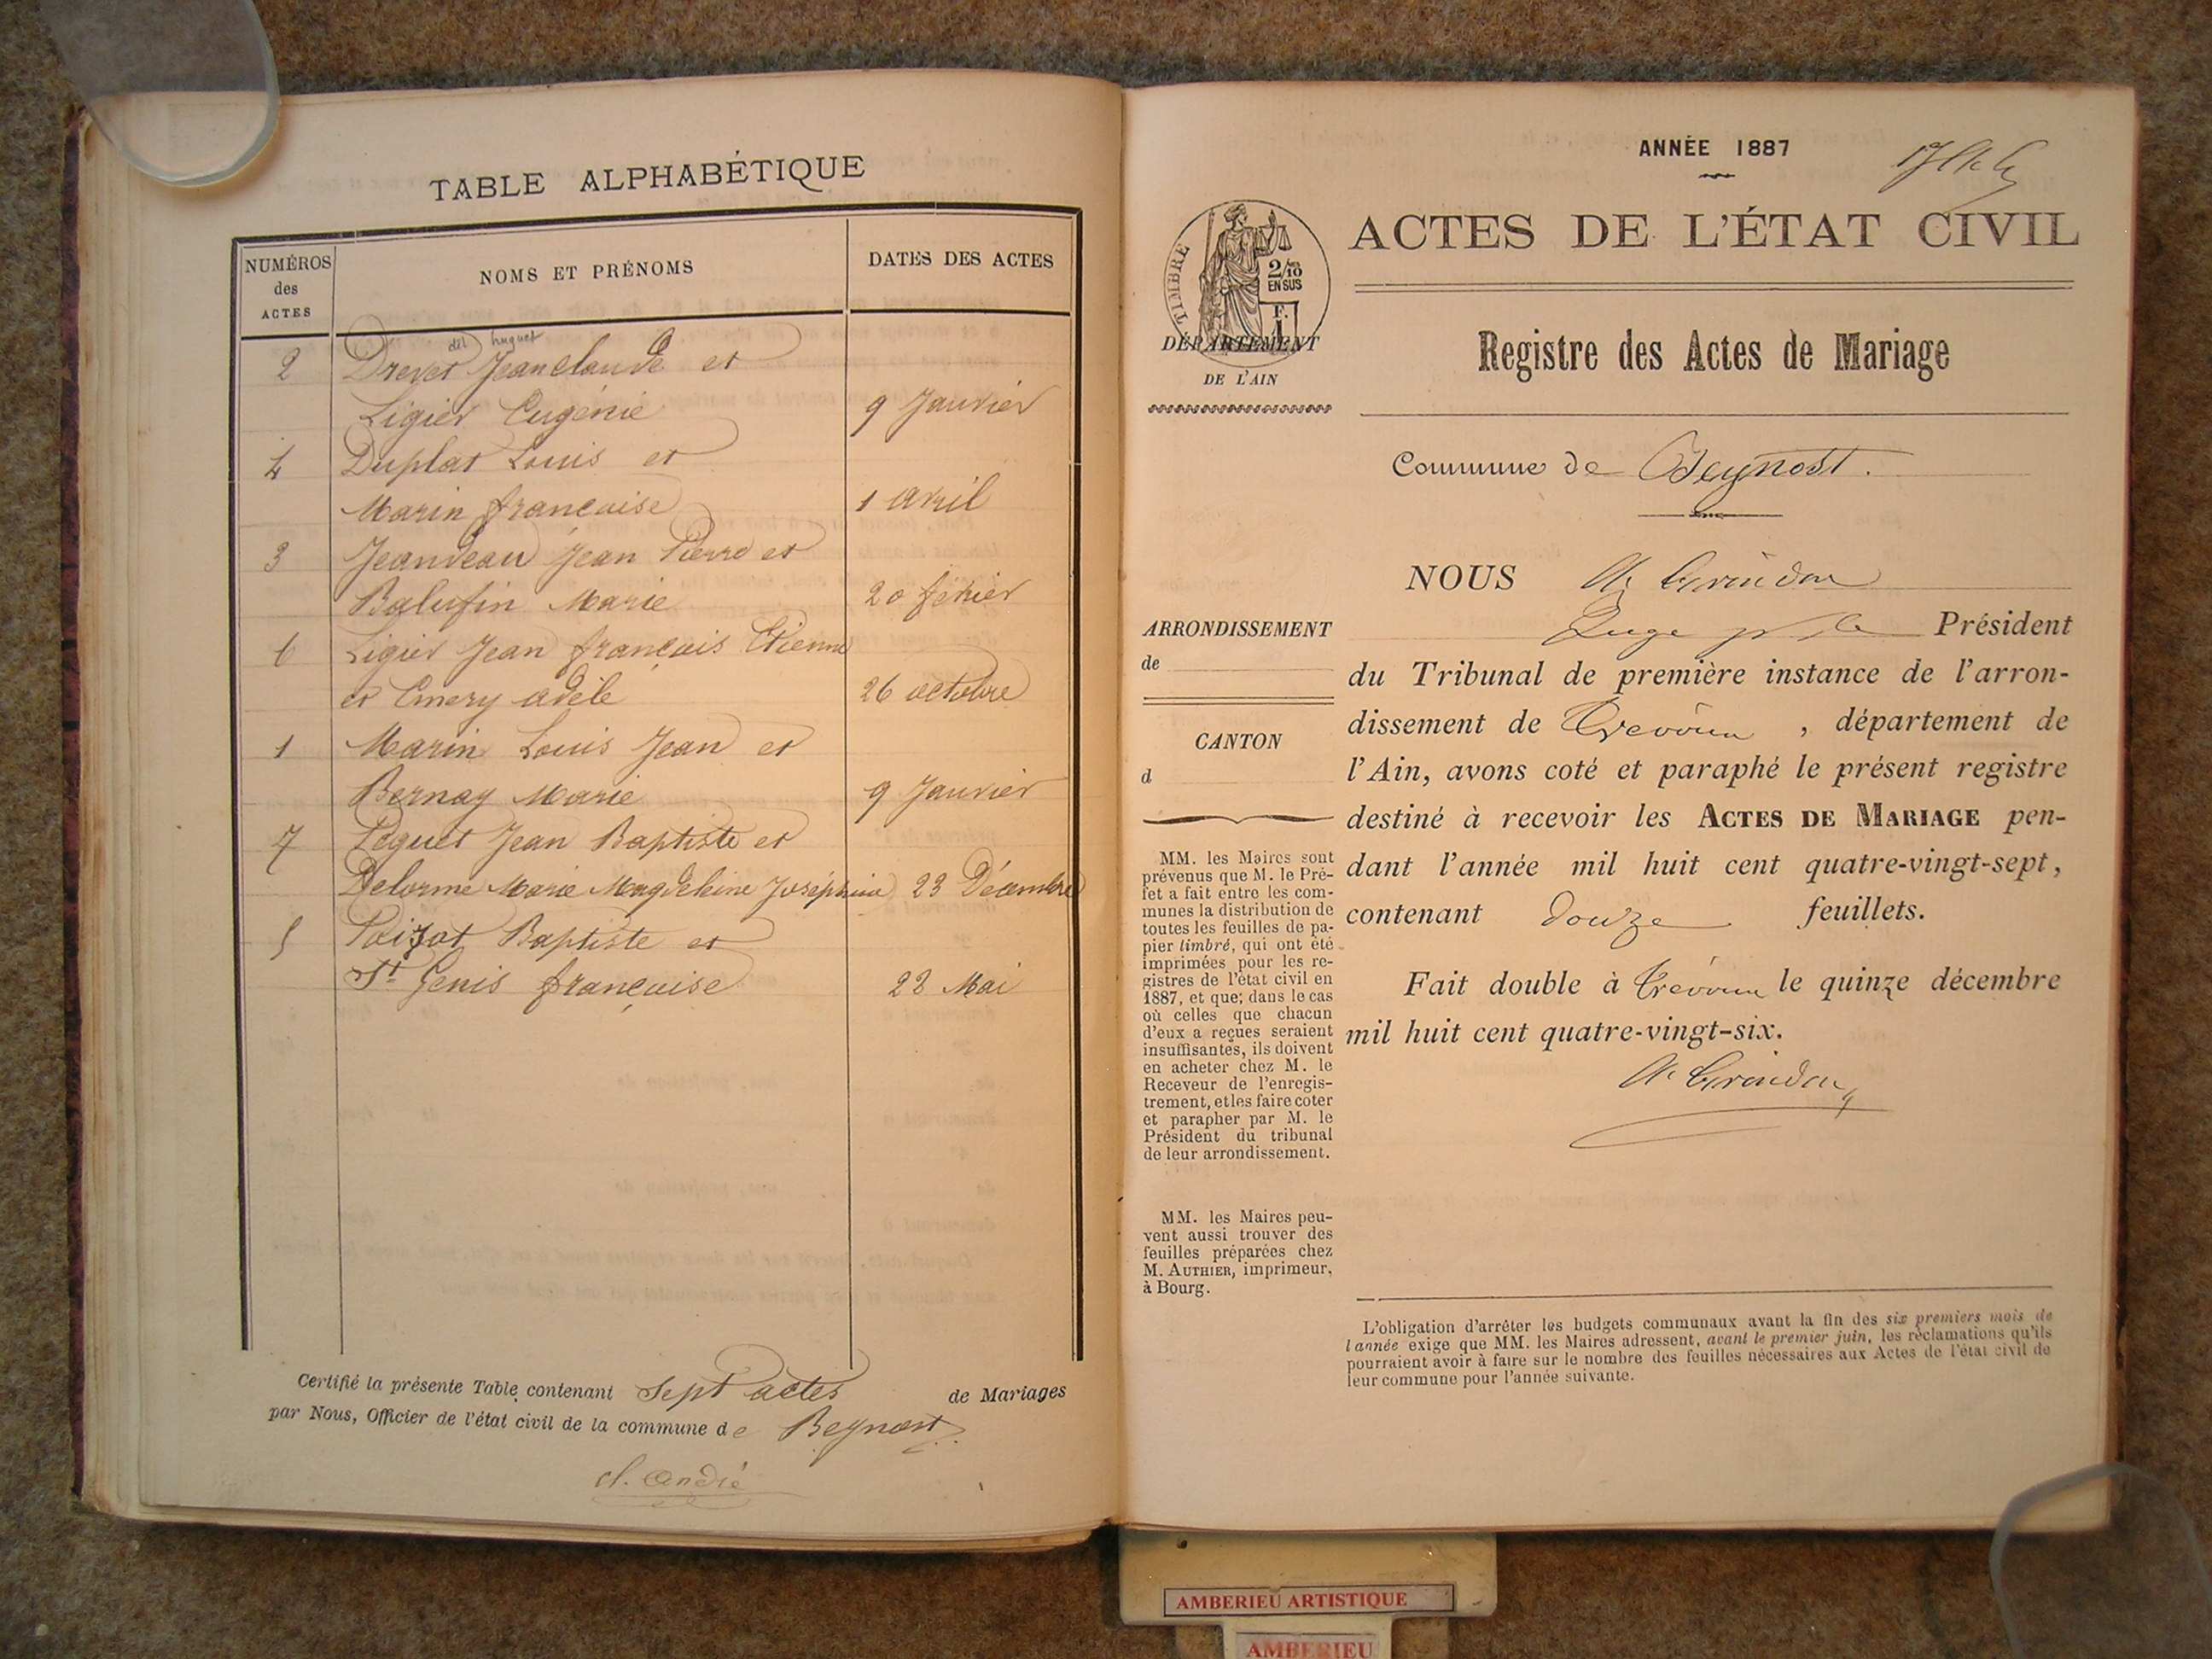 TABLE ALPHABÉTIQUE
NUMÉROS des ACTES
NOMS ET PRÉNOMS
DATES DES ACTES
dit huguet
2 Drevet Jean Claude et
Ligier Eugénie 9 Janvier
4 Duplat Louis et
Marin françoise 1 avril
3 Jeandeau Jean Pierre et
Balufin Marie 20 février
6 Ligier Jean françois Etienne
et Emery adèle 26 octobre
1 Marin Louis Jean et
Bernay Marie 9 Janvier
7 Péguet Jean Baptiste et
Delorme Marie Magdeleine Joséphine 23 Décembre
5 Poizat Baptiste et
St Genis françoise 28 Mai
Certifié la présente Table contenant sept actes de Mariages
par Nous, Officier de l'état civil de la commune de Beynost
cl. andré
ANNÉE 1887
ACTES DE L'ÉTAT CIVIL
TIMBRE
2/10 EN SUS
F. 1
DÉPARTEMENT
DE L'AIN
Registre des Actes de Mariage
Commune de Beynost.
NOUS
Juge pr le Président
du Tribunal de première instance de l'arron-
dissement de Trévoux, département de
l'Ain, avons coté et paraphé le présent registre
destiné à recevoir les ACTES DE MARIAGE pen-
dant l'année mil huit cent quatre-vingt-sept,
contenant douze feuillets.
Fait double à Trévoux le quinze décembre
mil huit cent quatre-vingt-six.
ARRONDISSEMENT
de
CANTON
d
MM. les Maires sont
prévenus que M. le Pré-
fet a fait entre les com-
munes la distribution de
toutes les feuilles de pa-
pier timbré, qui ont été
imprimées pour les re-
gistres de l'état civil en
1887, et que; dans le cas
où celles que chacun
d'eux a reçues seraient
insuffisantes, ils doivent
en acheter chez M. le
Receveur de l'enregis-
trement, et les faire coter
et parapher par M. le
Président du tribunal
de leur arrondissement.
MM. les Maires peu-
vent aussi trouver des
feuilles préparées chez
M. AUTHIER, imprimeur,
à Bourg.
L'obligation d'arrêter les budgets communaux avant la fin des six premiers mois de
l'année exige que MM. les Maires adressent, avant le premier juin, les réclamations qu'ils
pourraient avoir à faire sur le nombre des feuilles nécessaires aux Actes de l'état civil de
leur commune pour l'année suivante.
AMBERIEU ARTISTIQUE
AMBERIEU